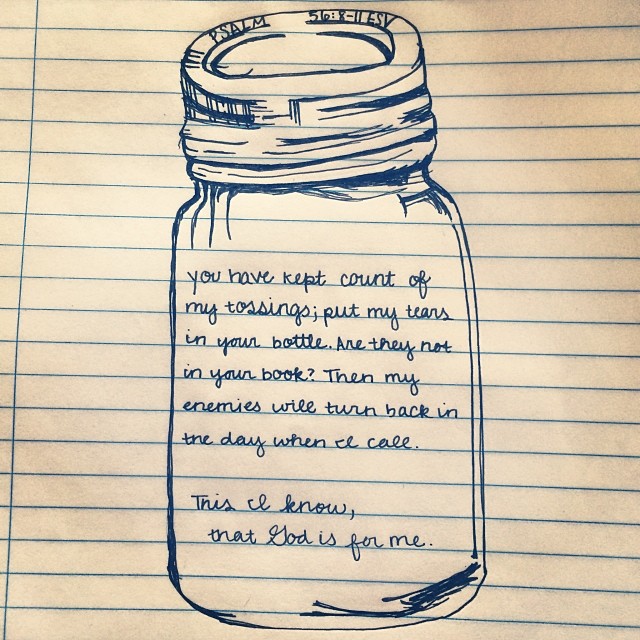 PSALM 56:8-11 ESV
you have kept count of
my tossings; put my tears
in your bottle. Are they not
in your book? Then my
enemies will turn back in
the day when I call.
This I know,
that God is for me.